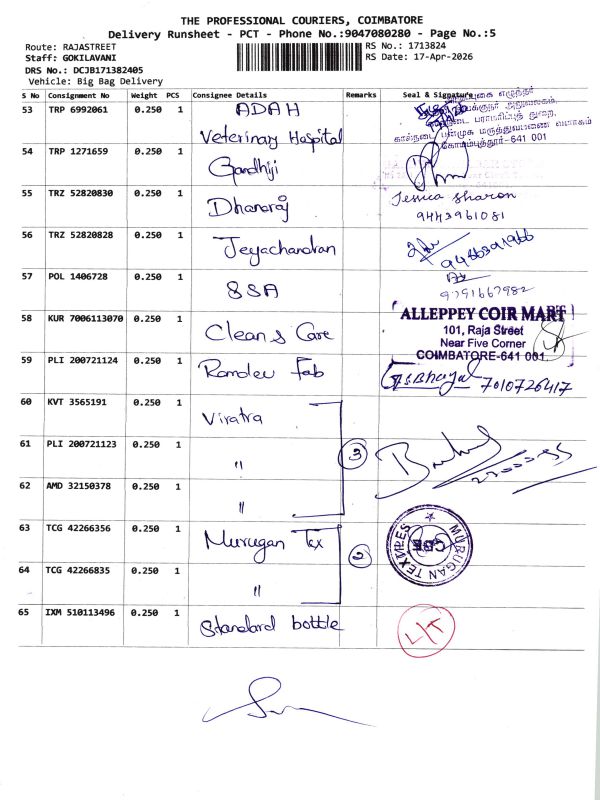 THE PROFESSIONAL COURIERS, COIMBATORE
Delivery Runsheet - PCT - Phone No.:9047080280 - Page No.:5
Route: RAJASTREET
Staff: GOKILAVANI
DRS No.: DCJB171382405
Vehicle: Big Bag Delivery
RS No.: 1713824
RS Date: 17-Apr-2026
S No Consignment No Weight PCS Consignee Details Remarks Seal & Signature
53 TRP 6992061 0.250 1 ADAH
Veterinary Hospital
துறை,
கால்நடை பன்முக மருத்துவமனை வளாகம்
கோயம்புத்தூர்-641 001
54 TRP 1271659 0.250 1 Gandhiji
55 TRZ 52820830 0.250 1 Dhanaraj Jessica Sharon
9443961081
56 TRZ 52820828 0.250 1 Jeyachandran
57 POL 1406728 0.250 1 SSA 9791667982
58 KUR 7006113070 0.250 1 Clean & Care
ALLEPPEY COIR MART
101, Raja Street
Near Five Corner
COIMBATORE-641 001
59 PLI 200721124 0.250 1 Ramdev Fab 7010726417
60 KVT 3565191 0.250 1 Viratra
61 PLI 200721123 0.250 1 " 3
62 AMD 32150378 0.250 1 "
63 TCG 42266356 0.250 1 Murugan Tex 2
MURUGAN TEXTILES
CBE
64 TCG 42266835 0.250 1 "
65 IXM 510113496 0.250 1 Standard bottle L/T